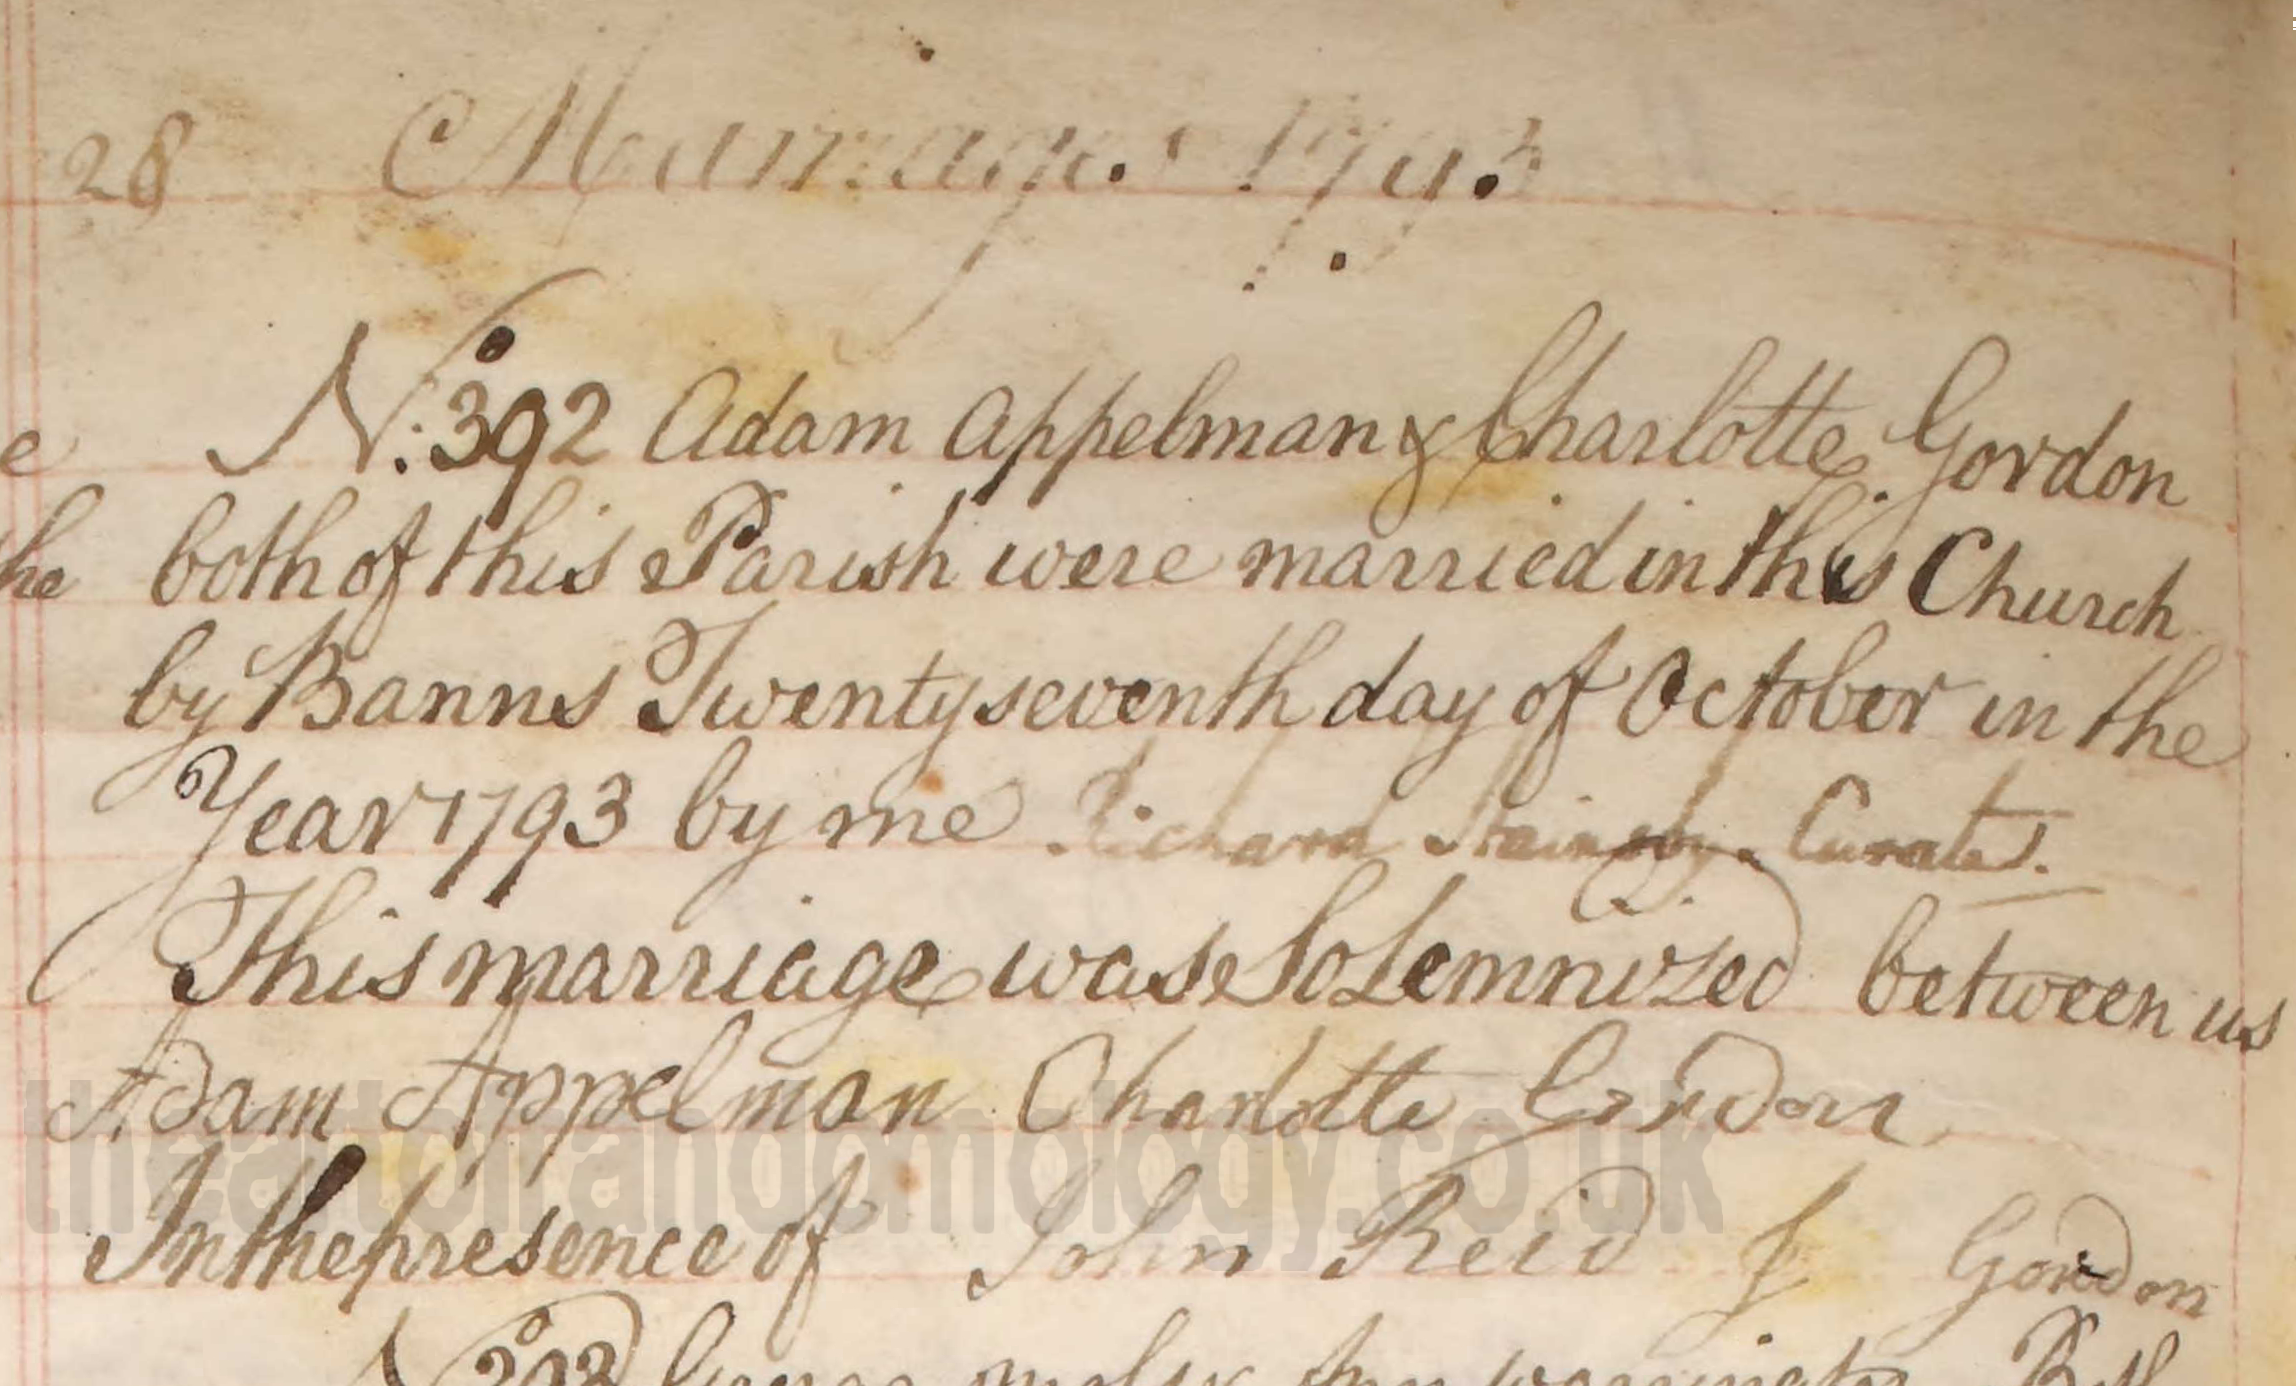 28 Marriages 1793
e N:o 392 Adam Appelman & Charlotte Gordon
he both of this Parish were married in this Church
by Banns Twenty seventh day of October in the
Year 1793 by me Richard Curate.
This marriage was Solemnized between us
Adam Appelman Charlotte Gordon
theartofrandomology.co.uk
In the presence of John Reid J Gordon
No 393